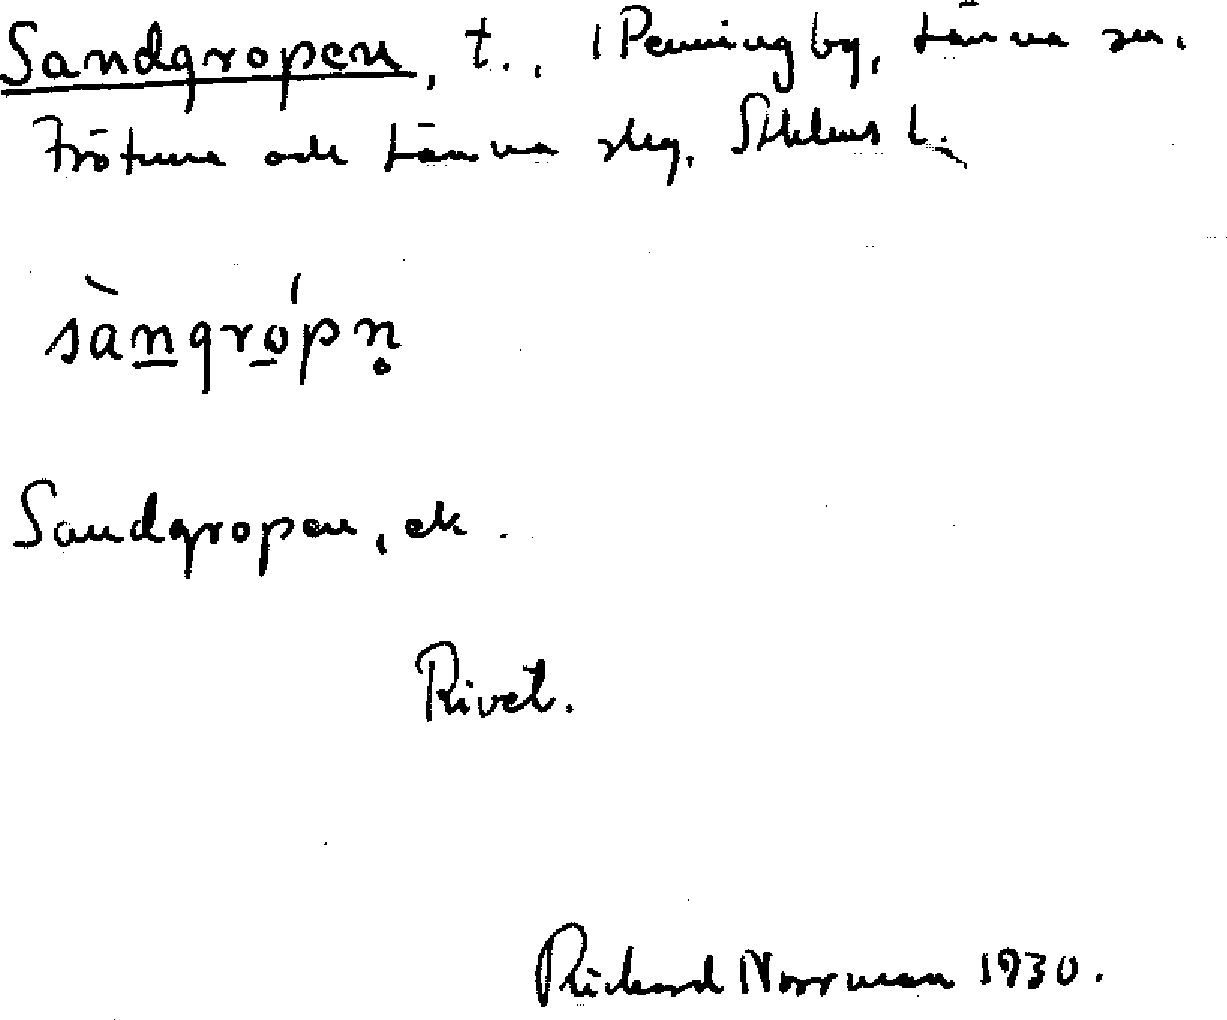 Sandgropen, t., 1 Penningby, Länna sn.
Frötuna och Länna skg, Sthlms l.
sàngrópn̥
Sandgropen, ek.
Rivet.
Richard Norrman 1930.